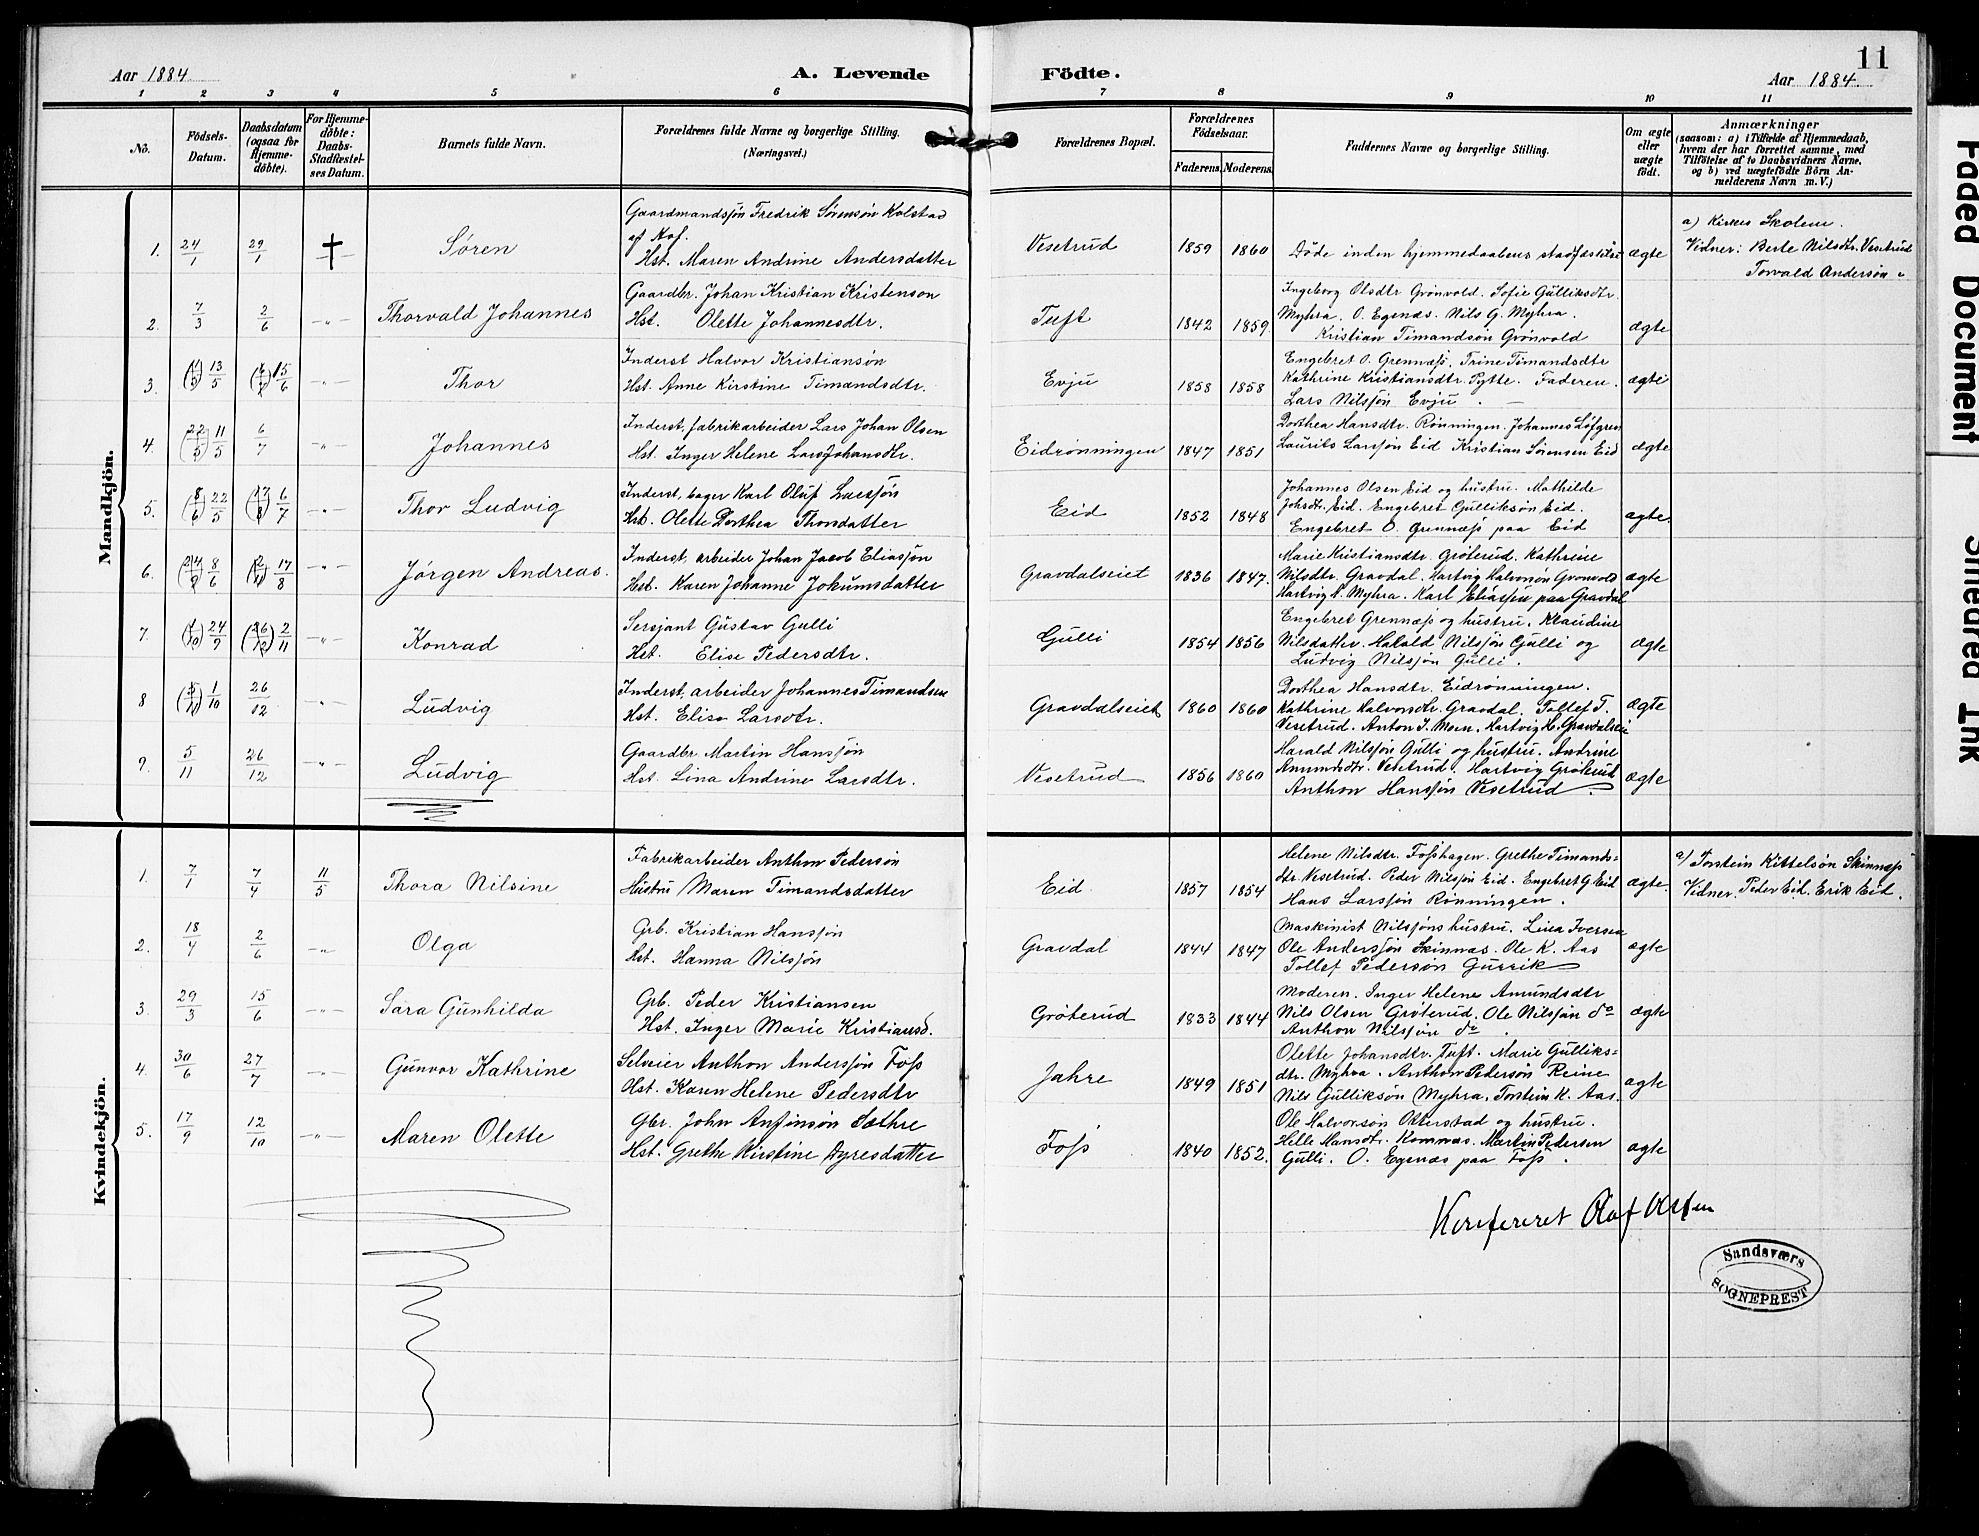 11
Aar 1884. A. Levende Födte. Aar 1884.
1 2 3 4 5 6 7 8 9 10 11
No. Födsels-Datum. Daabsdatum (ogsaa for Hjemme-döbte). For Hjemme-döbte: Daabs-Stadfæstel-ses Datum. Barnets fulde Navn. Forældrenes fulde Navne og borgerlige Stilling. (Næringsvei.) Forældrenes Bopæl. Forældrenes Födselsaar. Faderens. Moderens. Faddernes Navne og borgerlige Stilling. Om ægte eller uægte födt. Anmærkninger (saasom: a) i Tilfælde af Hjemmedaab, hvem der har forrettet samme, med Tilföielse af to Daabsvidners Navne. og b) ved uægtefödte Börn An-melderens Navn m.V.)
Mandkjön.
1. 24/1 29/1 † Søren
Gaardmandsjøn Fredrik Sørensøn Kolstad
af Nof.
Hst. Maren Andrine Andersdatter
Vesetrud 1859 1860 Døde inden hjemmedaabens stadfæstelse ægte
a) Kirkes Skolem.
Vidner: Berte Nilsdtr. Vesetrud
Torvald Andersøn "
2. 7/3 2/6 -"- Thorvald Johannes
Gaardbr. Johan Kristian Kristenson
Hst. Olette Johannesdtr.
Tuft 1842 1859
Ingeborg Olsdtr Grønvold. Sofie Gulliksdtr.
Myhra. O. Egenæs. Nils G. Myhra.
Kristian Timandsøn Grønvold
ægte
3. 13/5 15/6 -"- Thor
Inderst Halvor Kristiansøn
Hst. Anne Kirstine Timandsdtr.
Evju 1858 1858
Engebret O. Grennæss. Trine Timandsdtr
Kathrine Kristiansdtr. Pytte. Faderen.
Lars Nilsjøn Evju. —
ægte
4. (22/5) 11/5 6/7 -"- Johannes
Inderst, fabrikarbeider Lars Johan Olsen
Hst. Inger Helene LarsJohansdtr.
Eidrønningen 1847 1851
Dorthea Hansdtr. Rønningen. Johannes Løfgren
Laurits Larsjøn Eid Kristian Sørensen Eid
ægte
5. (8/6) 22/5 6/7 -"- Thor Ludvig
Inderst, bager Karl Oluf Larsjøn
Hst. Olette Dorthea Thorsdatter
Eid 1852 1848
Johannes Olsen Eid og hustru. Mathilde
Johsdtr. Eid. Engebret Gulliksøn Eid.
Engebret O. Grennæss paa Eid
ægte.
6. 8/6 17/8 -"- Jørgen Andreas.
Inderst, arbeider Johan Jacob Eliasjøn
Hst. Karen Johanne Jokumsdatter
Gravdalseiet 1836 1847.
Marie Kristiansdtr. Grøterud. Kathrine
Nilsdtr. Gravdal. Hartvig Halvorsøn Grønvold
Hartvig N. Myhra. Karl Eliassen paa Gravdal
ægte
7. 24/9 2/11 -"- Konrad
Sersjant Gustav Gulli
Hst. Elise Pedersdtr.
Gulli 1854 1856
Engebret Grennæss og hustru. Klaudine
Nilsdatter. Halald Nilsjøn Gulli og
Ludvig Nilsjøn Gulli.
ægte
8 1/10 26/12 -"- Ludvig
Inderst, arbeider Johannes Timandsen
Hst. Elise Larsdtr.
Gravdalseiet 1860 1860
Dorthea Hansdtr. Eidrønningen.
Kathrine Halvorsdtr. Gravdal. Tollef T.
Vesetrud. Anton I. Moen. Hartvig H. Gravdalseie
ægte
9. 5/11 26/12 -"- Ludvig
Gaardbr Martin Hansjøn
Hst. Lina Andrine Larsdtr.
Vesetrud 1856 1860
Harald Nilsjøn Gulli og hustru. Andrine
Amundsdtr. Vesetrud. Hartvig Grøterud
Anthon Hansjøn Vesetrud.
ægte
Kvindekjön.
1. 7/1 7/4 11/5 Thora Nilsine
Fabrikarbeider Anthon Pedersøn
Hustru Maren Timandsdatter
Eid 1857 1854
Helene Nilsdtr. Fosshagen. Grethe Timands=
dtr. Vesetrud. Peder Nilsjøn Eid. Engebret G. Eid
Hans Larsjøn Rønningen.
ægte.
a) Torstein Kittelsøn Skinnæss
Vidner. Peder Eid. Erik Eid.
2. 18/4 2/6 -"- Olga
Grb. Kristian Hansjøn
Hst. Hanna Nilsjøn
Gravdal 1844 1847
Maskinist Nilsjøns hustru. Lina Iversen
Ole Andersjøn Skinnæs. Ole K. Aas
Tollef Pedersøn Gurrik
ægte
3. 29/3 15/6 -"- Sara Gunhilda
Grb. Peder Kristiansen
Hst. Inger Marie Kristiansd.
Grøterud 1833 1844
Moderen. Inger Helene Amundsdtr
Nils Olsen Grøterud. Ole Nilsjøn do
Anthon Nilsjøn do.
ægte
4. 30/6 27/7 -"- Gunvor Kathrine
Selveier Anthon Andersjøn Foss
Hst. Karen Helene Pedersdtr
Jahre 1849 1851
Olette Johansdtr. Tuft. Marie Gulliks=
dtr. Myhra. Anthon Pedersøn Reine
Nils Gulliksøn Myhra. Torstein K. Aas.
ægte
5. 17/9 12/10 -"- Maren Olette
Gbr. John Anfinsøn Sæthre
Hst. Grethe Kirstine Dyresdatter
Foss 1840 1852.
Ole Halvorsøn Otterstad og hustru.
Helle Hansdtr. Komnæs. Martin Pedersen
Gulli. O. Egenæs paa Foss.
ægte
Konfereret Olaf Olsen
Sandsværs
SOGNEPREST
Faded Document
Smeared Ink